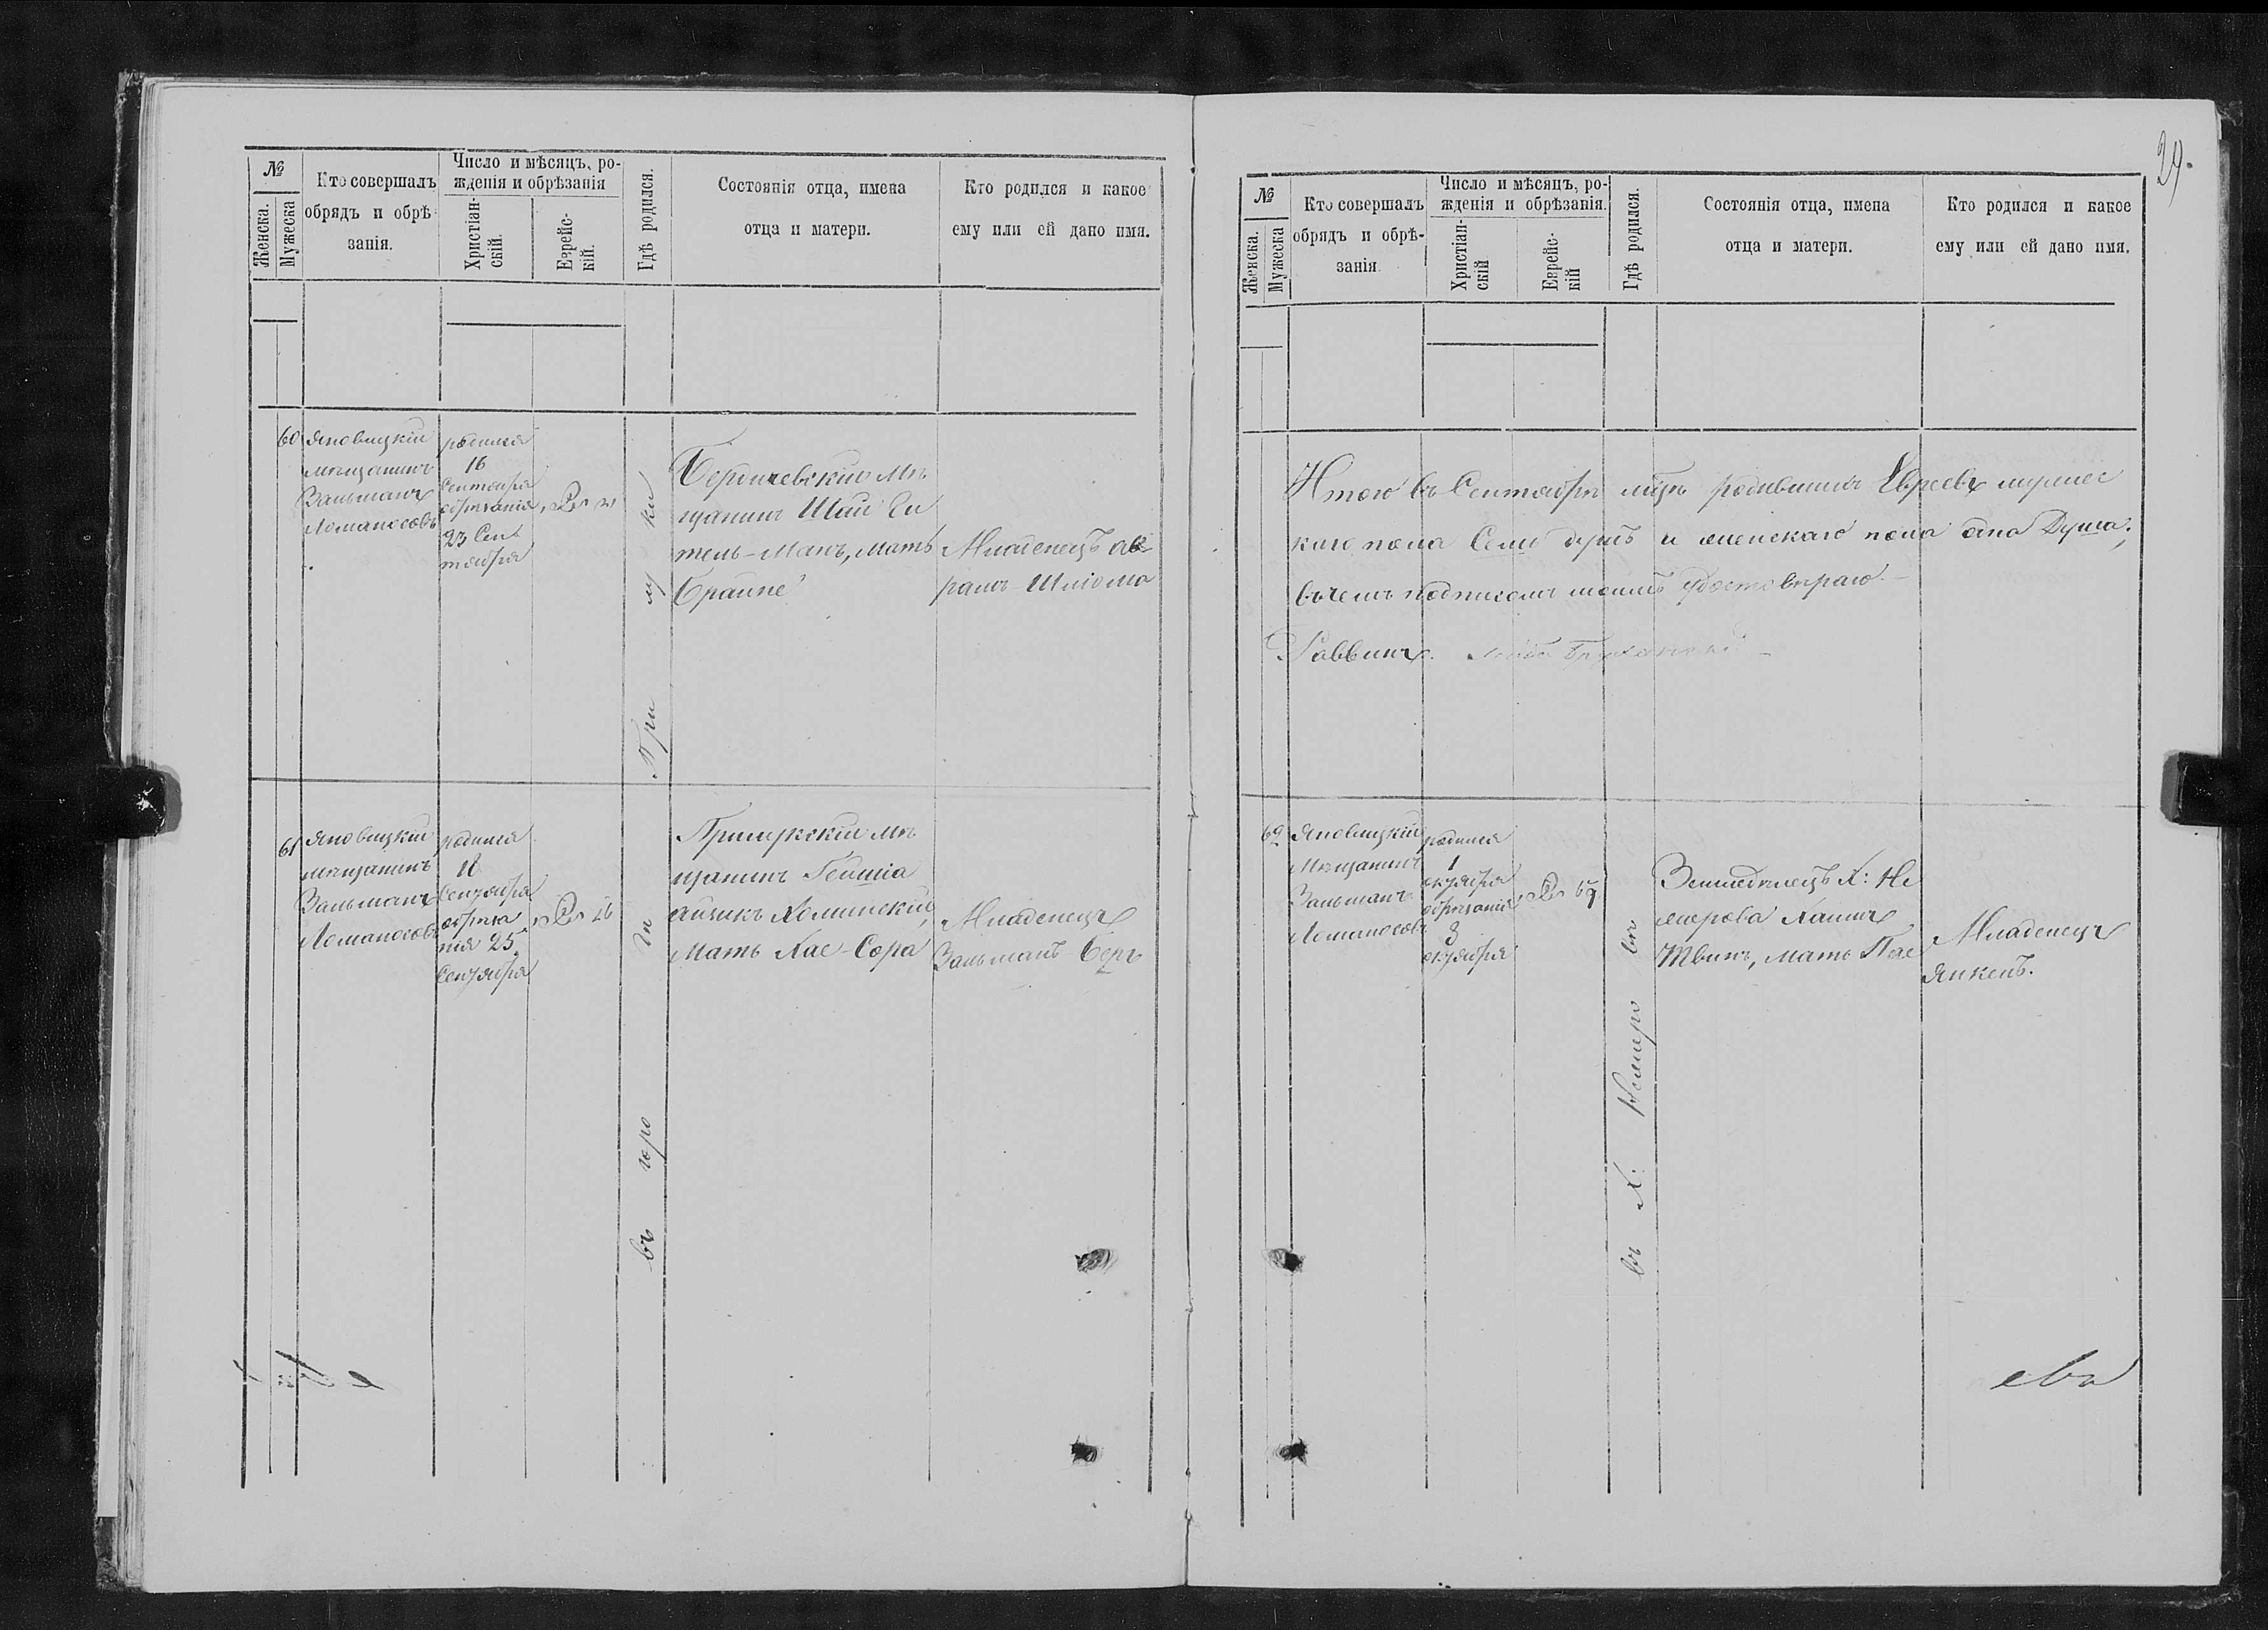 №
Женска.
Мужеска
Кто совершалъ
обрядъ и обрѣ-
занія.
Число и мѣсяцъ, ро-
жденія и обрѣзанія
Христіан-
скій.
Еврейс-
кій.
Гдѣ родился.
Состоянія отца, имена
отца и матери.
Кто родился и какое
ему или ей дано имя.
60
Яновицкій
мѣщанинъ
Зальманъ
Ломаносовъ
родился
16
Сентября
обрѣзанія
23 Сен
тября
При
лу
ки
Бердичевскій мѣ
щанинъ Шай Ей
тель-Манъ, мать
Брайне
Младенецъ Ав
рамъ-Шліома
61
Яновицкій
мѣщанинъ
Зальманъ
Ломаносовъ
родился
18
Сентября
обрѣза
нія 25
Сентября
въ
горо
дѣ
Прилукскій мѣ
щанинъ
Айзикъ Холминскій,
Мать Хае-Сора
Младенецъ
Зальманъ-Беръ
29.
№
Женска.
Мужеска
Кто совершалъ
обрядъ и обрѣ-
занія.
Число и мѣсяцъ, ро-
жденія и обрѣзанія.
Христіан-
скій
Еврейс-
кій
Гдѣ родился.
Состоянія отца, имена
отца и матери.
Кто родился и какое
ему или ей дано имя.
Итого въ Сентябрѣ мѣцѣ родившихъ Евреевъ мужес
каго пола Семь душъ и женскаго пола одна Душа;
въ чемъ подписомъ моимъ удостовѣраю.
Раввинъ
62
Яновицкій
Мѣщанинъ
Зальманъ
Ломаносовъ
родился
1
октября
обрѣзанія
октября
въ Х:
Земледѣлецъ Х: Не
жерова Хаимъ
мать
Младенецъ
Янкель.
ева